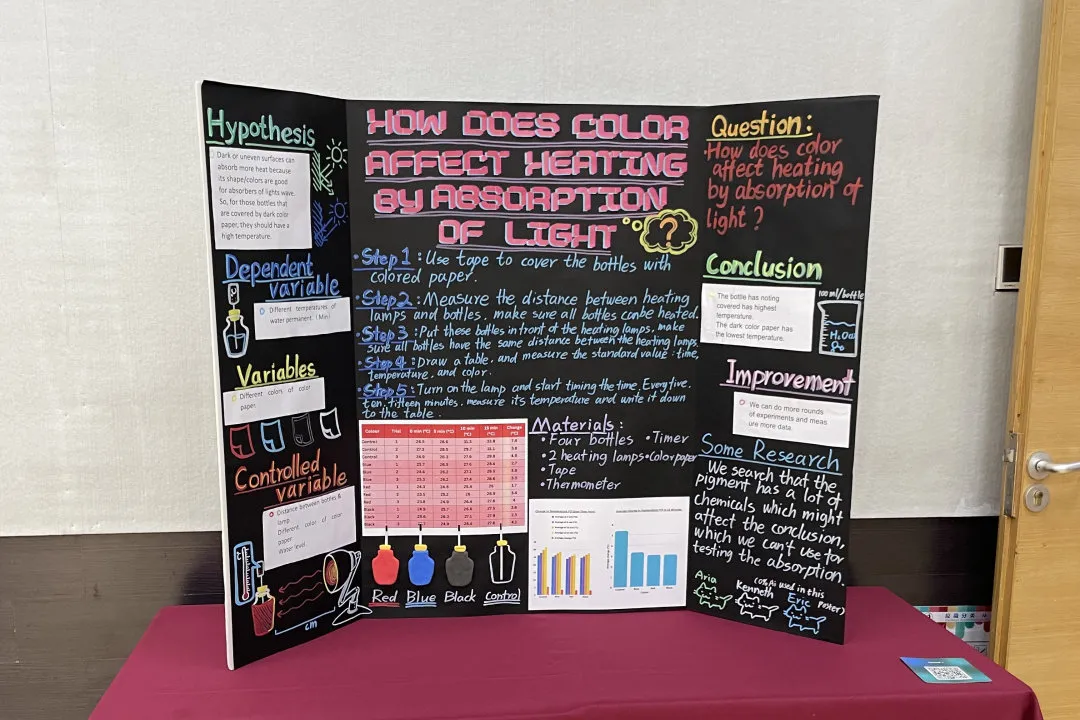 Hypothesis
Dark or uneven surfaces can
absorb more heat because
its shape/colors are good
for absorbers of lights wave.
So, for those bottles that
are covered by dark color
paper, they should have a
high temperature.
Dependent
variable
Different temperatures of
water permanent. (Min)
Variables
Different colors of color
paper.
Controlled
variable
Distance between bottles &
lamp
Different color of color
paper
Water level
cm
HOW DOES COLOR
AFFECT HEATING
BY ABSORPTION
OF LIGHT
?
• Step 1 : Use tape to cover the bottles with
colored paper.
• Step 2 : Measure the distance between heating
lamps and bottles, make sure all bottles can be heated.
• Step 3 : Put these bottles in front of the heating lamps, make
sure all bottles have the same distance between the heating lamps.
• Step 4 : Draw a table, and measure the standard value : time,
temperature, and color.
• Step 5 : Turn on the lamp and start timing the time. Every five,
ten, fifteen minutes, measure its temperature and write it down
to the table.
Colour Trial 0 min (°C) 5 min (°C) 10 min (°C) 15 min (°C) Change (°C)
Control 1
Control 2
Control 3
Blue 1
Blue 2
Blue 3
Red 1
Red 2
Red 3
Black 1
Black 2
Black 3
Red Blue Black Control
Materials :
• Four bottles • Timer
• 2 heating lamps • Color paper
• Tape
• Thermometer
Question:
• How does color
affect heating
by absorption of
light ?
Conclusion
The bottle has noting
covered has highest
temperature.
The dark color paper has
the lowest temperature.
100 ml/bottle
Improvement
We can do more rounds
of experiments and meas
ure more data.
Some Research
We search that the
pigment has a lot of
chemicals which might
affect the conclusion,
which we can't use for
testing the absorption.
(0% Ai used in this
poster)
Aria
Kenneth
Eric